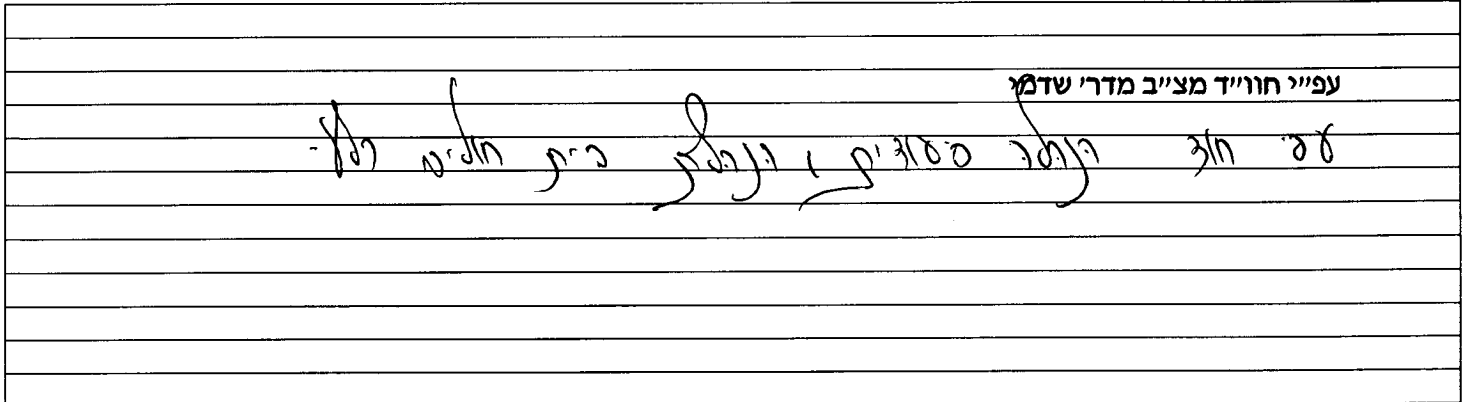 עפ״י חוו״ד מצ״ב מדר׳ שדמי
עפ״י חוד הנהלה סעודים, הנהלת בית חולים